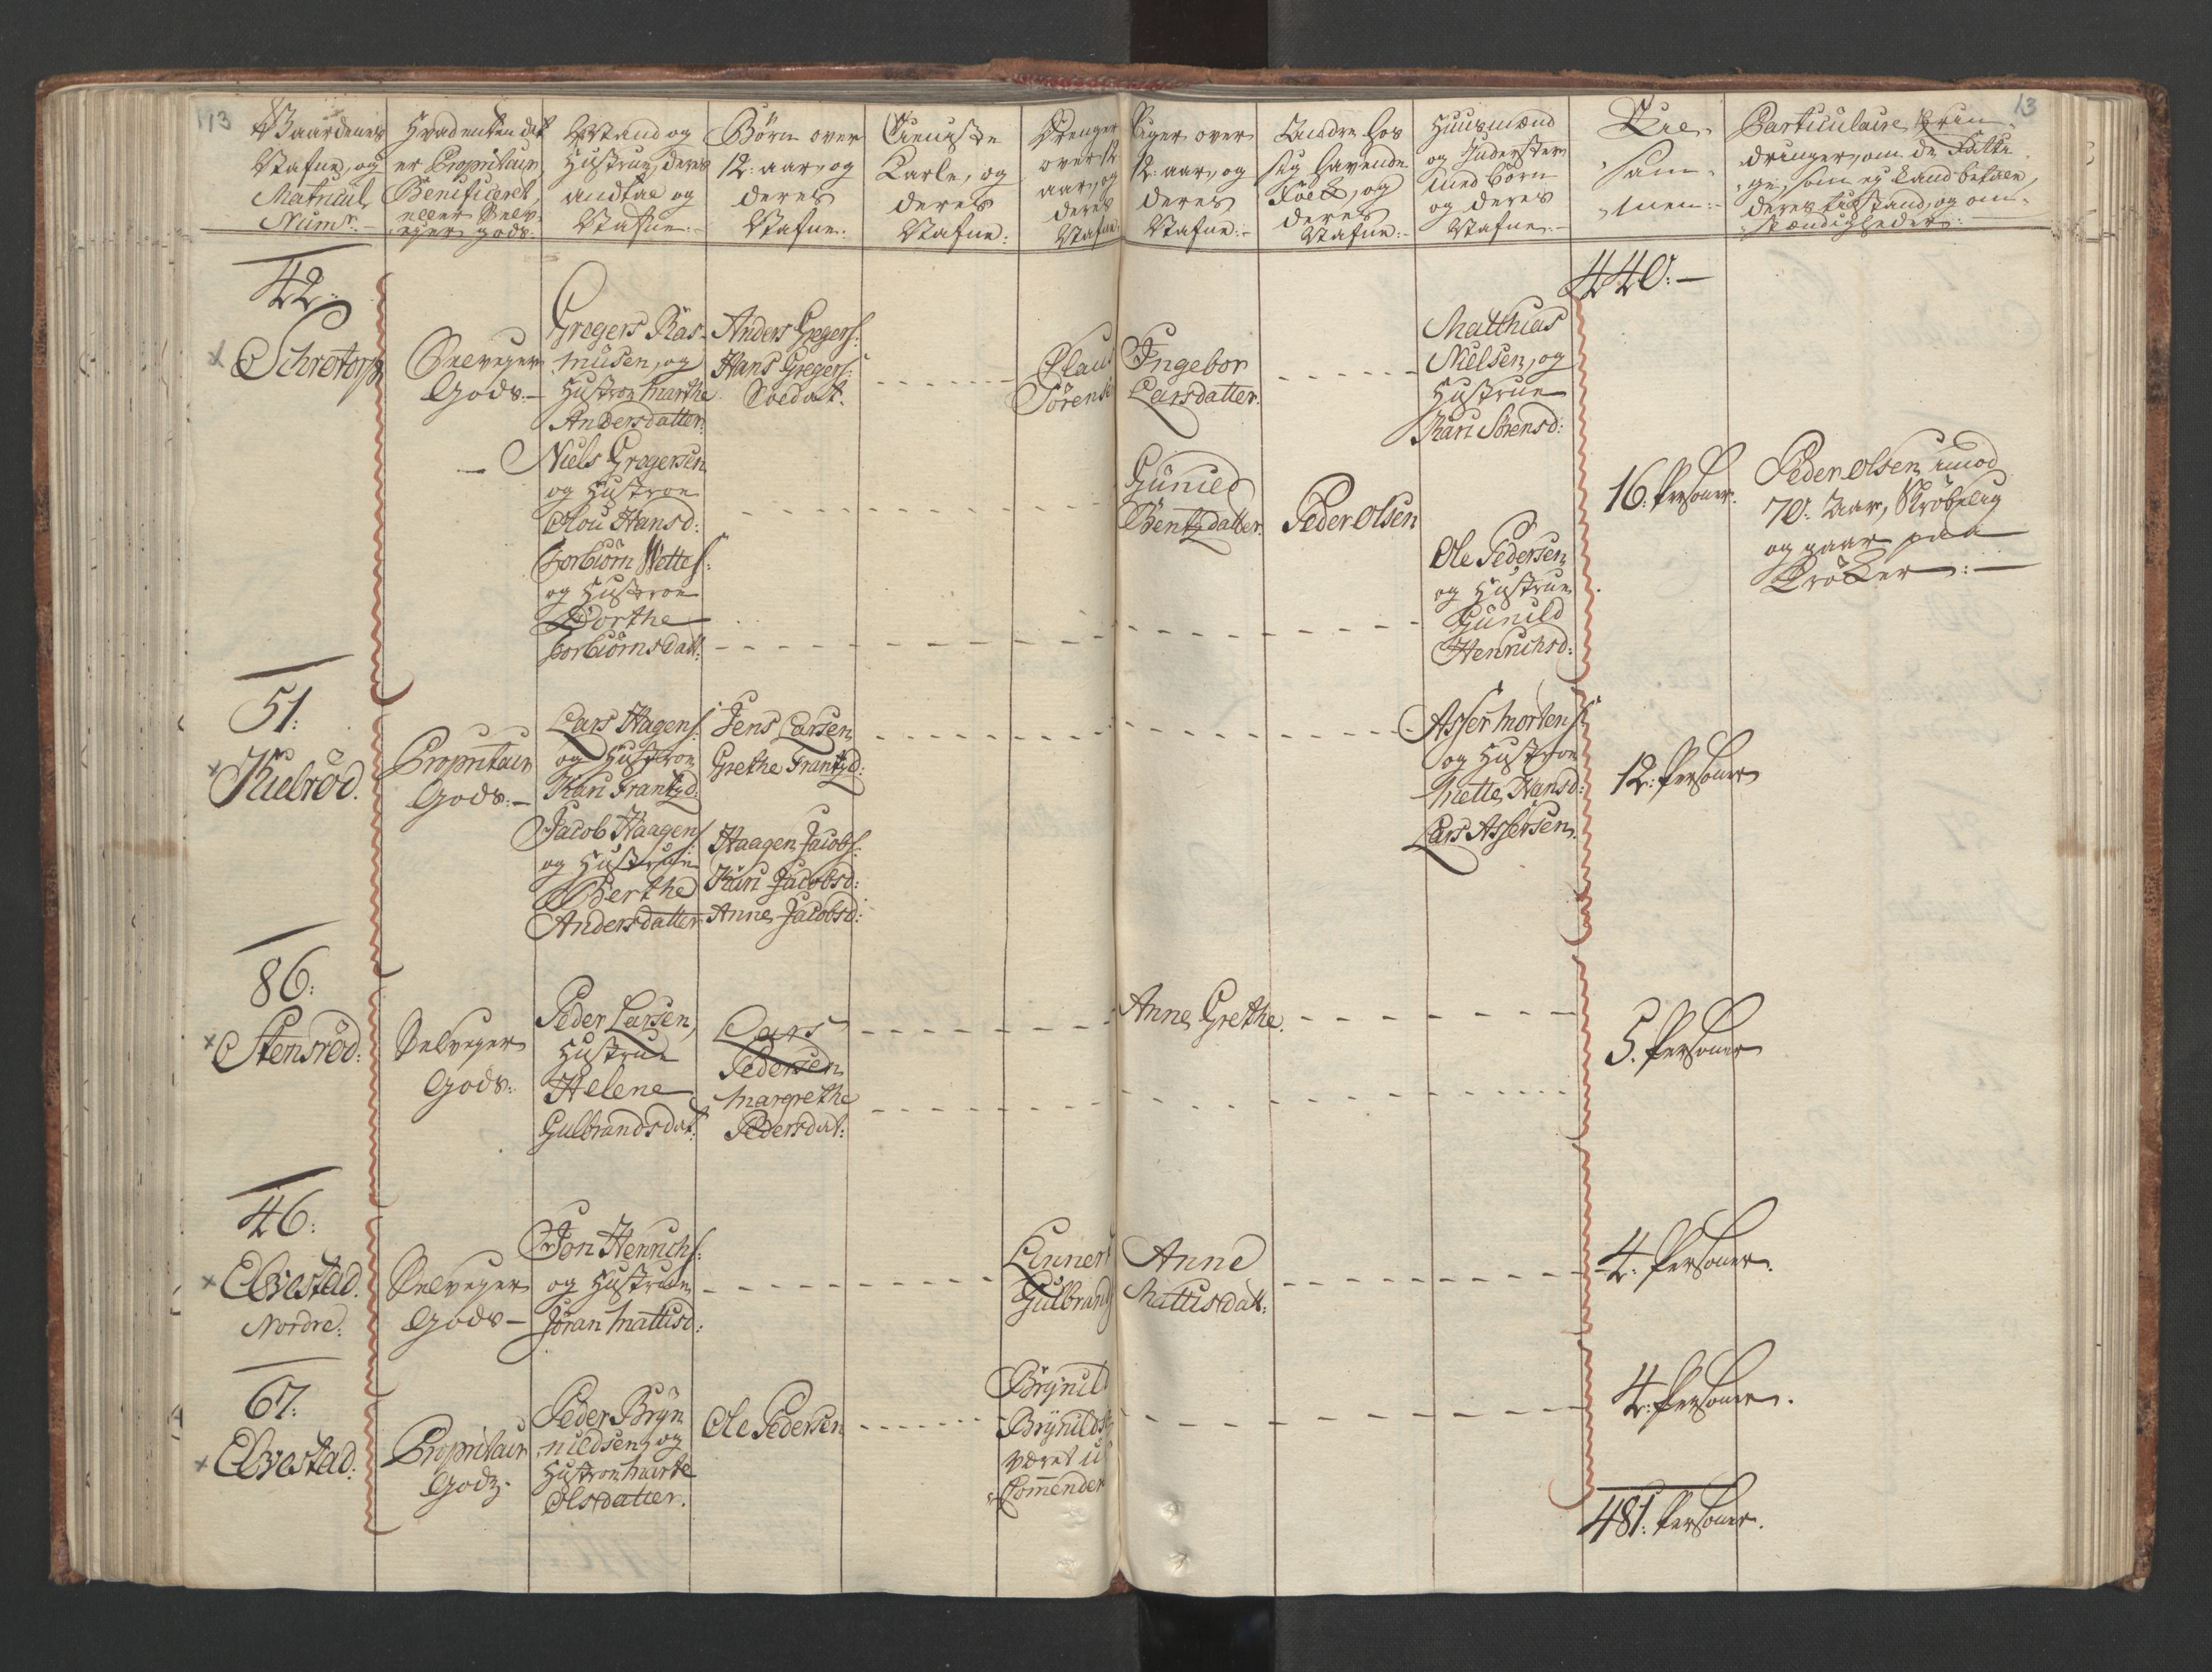 113
Gaardenes
Nafne, og
Matricul
Numr:
Hvad enten det
er Propritair
Benificeret,
eller Selv-
eyer gods:
Mand og
Hustrue, deres
andtal og
Nafne:
Børn over
12: aar, og
deres
Nafne:
Tieniste
Karle, og
deres
Nafne:
Drenger
over 12
aar, og
deres
Nafne
Piger over
12: aar, og
deres
Nafne:
Andre hos
sig havende
Folk, og
deres
Nafne:
Huusmænd
og Inderster
med børn
og deres
Nafne:
Til-
sam-
men:
13
Particulaire Erin-
dringer, om de Fatti-
ge, som ey kand betale,
deres tilstand, og om-
stændigheder:
440:
42:
Schretorp
Selveyer
Gods:
Gregers Ras-
musen, og
Hustroe Marthe
Andersdatter:
Anders Gregers:
Hans Gregers:
Soldat.
Claus
Sörens
Ingebor
Larsdatter.
Matthias
Nielsen, og
Hustrue
Kari Sörensd:
Niels Gregersen
og Hustroe
Olou Hansd:
Gunild
Bentzdatter
Peder Olsen
16: Personer.
Peder Olsen imod
70: Aar, Skröbelig
og gaar paa
Kröker:
Torbiörn Wettes:
og Hustroe
Dorthe
Torbiörnsdatt:
Ole Pedersen
og Hustrue
Gunild
Henrichsd:
51:
Kielröd.
Propritair
Gods:
Lars Hagens:
og Hustroe
Kari Frantzd:
Jens Larsen
Grethe Frantzd:
Asser Mortens:
og Hustroe
Mette Hansd:
Lars Assersen.
12: Personer
Jacob Haagens:
og Hustrue
Berthe
Andersdatter
Haagen Jacobs:
Kari Jacobsd:
Anne Jacobsd:
86:
Stensröd:
Selveyer
Gods:
Peder Larsen,
Hustrue
Helene
Gulbrandsdat:
Lars
Pedersen
Margrethe
Pedersdat:
Anne Grethe.
5. Personer
46:
Elvestad.
Nordre:
Selveyer
Gods
Jon Henrichs:
og Hustrue
Jöran Mattisd:
Linnert
Gulbrands
Anne
Mattisdatt:
4: Personer.
67:
Elvestad:
Propritair
Godz.
Peder Bryn-
nildsen, og
Hustroe Marte
Olsdatter.
Ole Pedersen
Brynild
Brynilds
været u
Comender
4: Personer.
481: Personer.